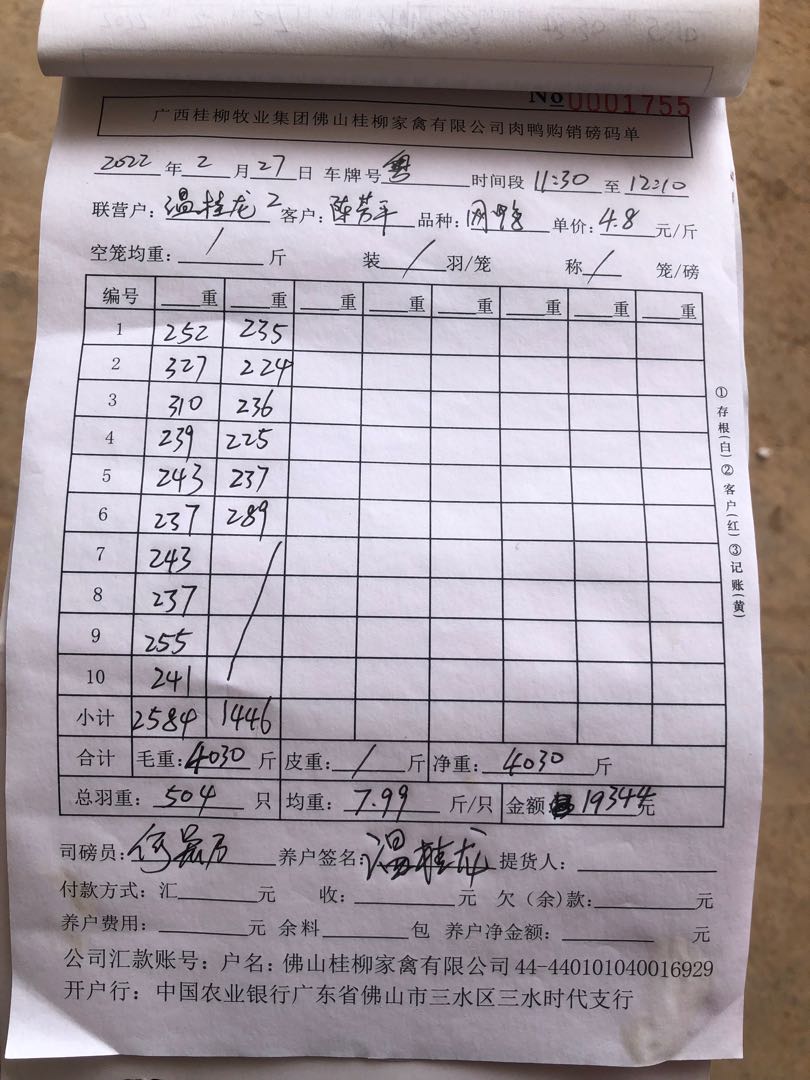 No 0001755
广西桂柳牧业集团佛山桂柳家禽有限公司肉鸭购销磅码单
2022 年 2 月 27 日 车牌号 粤 时间段 11:30 至 12:10
联营户: 温桂龙2 客户: 陈芳平 品种: 肉鸭 单价: 4.8 元/斤
空笼均重: / 斤 装 / 羽/笼 称 / 笼/磅
编号 重 重 重 重 重 重 重 重
1 252 235
2 327 224
3 310 236
4 239 225
5 243 237
6 237 289
7 243
8 237
9 255
10 241
小计 2584 1446
合计 毛重: 4030 斤 皮重: / 斤 净重: 4030 斤
总羽重: 504 只 均重: 7.99 斤/只 金额 19344 元
司磅员: 养户签名: 温桂龙 提货人:
付款方式: 汇 元 收: 元 欠(余)款: 元
养户费用: 元 余料 包 养户净金额: 元
公司汇款账号: 户名: 佛山桂柳家禽有限公司 44-440101040016929
开户行: 中国农业银行广东省佛山市三水区三水时代支行
①存根(白)②客户(红)③记账(黄)